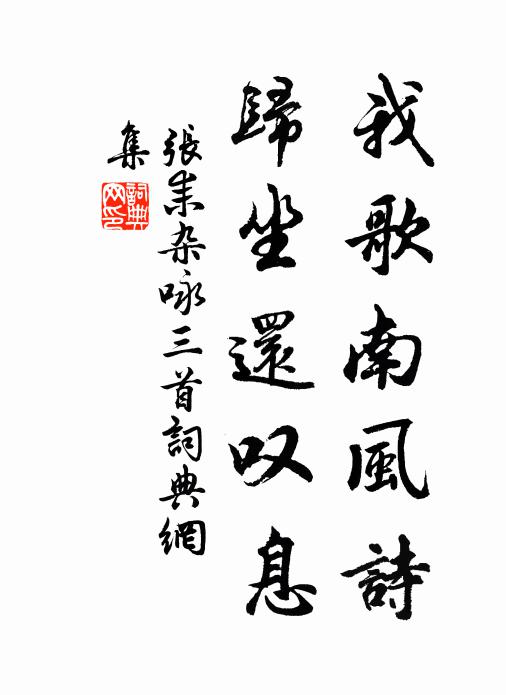 我歌南風詩
歸坐還叹息
張耒杂咏三首詞典網
集
詞典網印